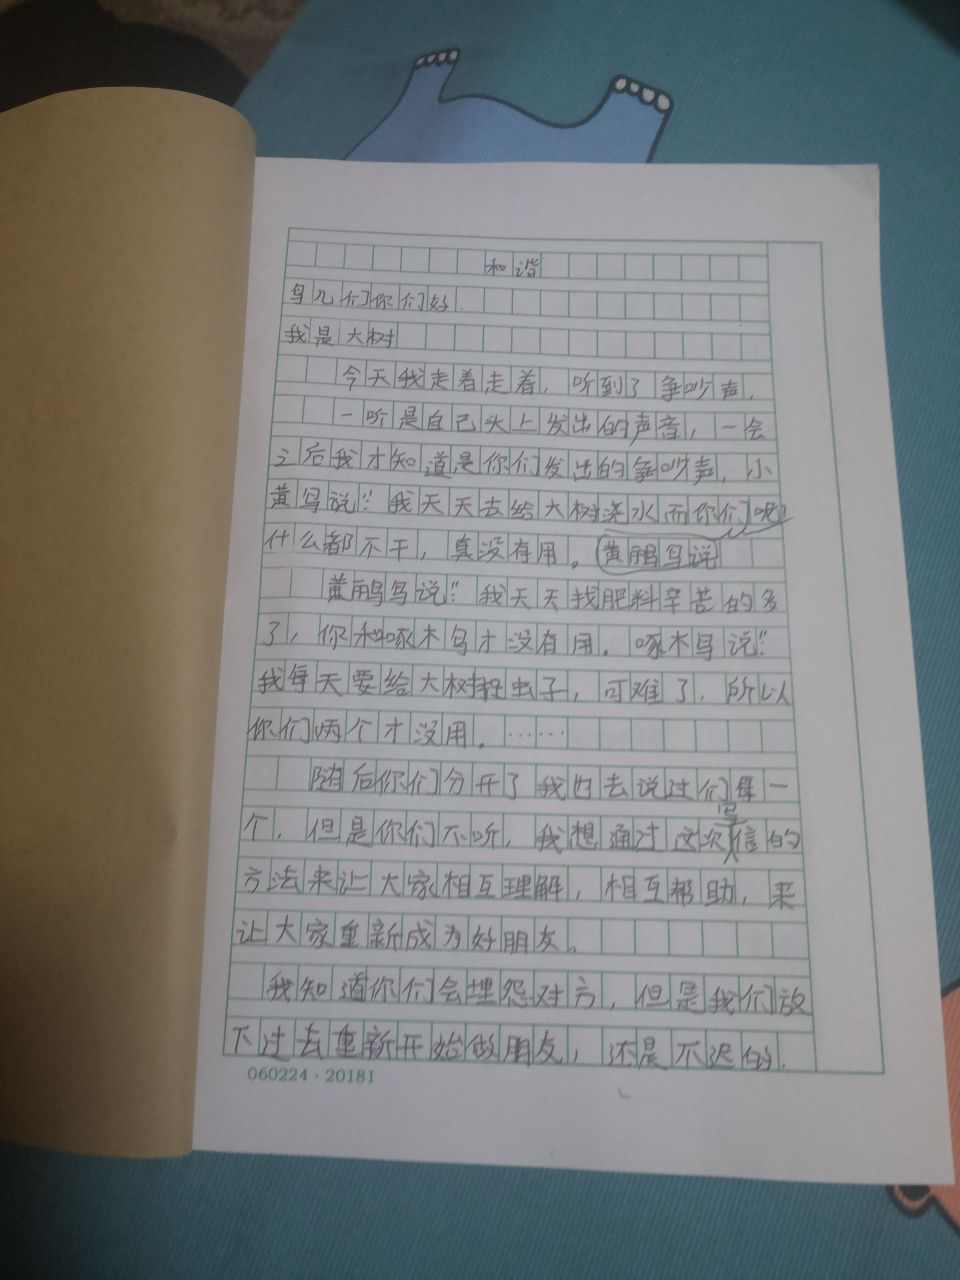 和谐
鸟儿们你们好.
我是大树
今天我走着走着，听到了争吵声，
一听是自己头上发出的声音，一会
之后我才知道是你们发出的争吵声，小
黄鸟说：“我天天去给大树浇水而你们呢
什么都不干，真没有用。黄鹂鸟说
黄鹂鸟说：“我天天找肥料辛苦的多
了，你和啄木鸟才没有用。啄木鸟说：“
我每天要给大树捉虫子，可难了，所以
你们两个才没用。……
随后你们分开了我也去说过们每一
个，但是你们不听，我想通过这次写信的
方法来让大家相互理解，相互帮助，来
让大家重新成为好朋友。
我知道你们会埋怨对方，但是我们放
下过去重新开始做朋友，还是不迟的.
060224·20181